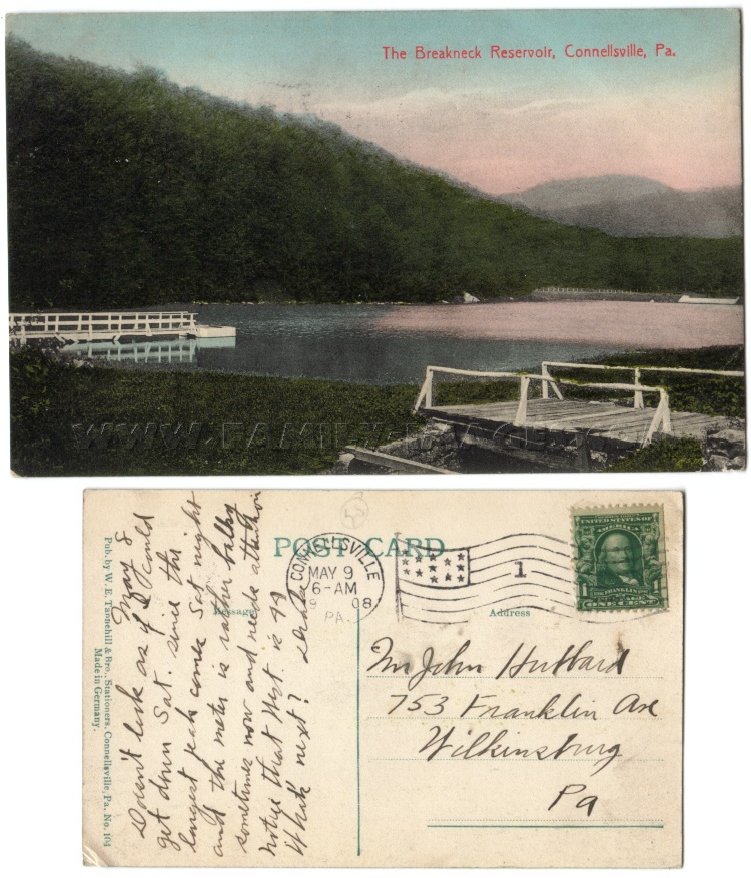 The Breakneck Reservoir, Connellsville, Pa.
WWW.FAMILY-IMAGES.COM
POST CARD
CONNELLSVILLE
MAY 9
6-AM
08
PA.
1
UNITED STATES OF AMERICA
1
FRANKLIN
ONE CENT
Message
Address
Mr John Hubbard
753 Franklin Ave
Wilkinsburg
Pa
May 8
Doesn't look as if I could
get down Sat. since the
longest peak comes Sat. night
and the meter is rather balky
sometimes now and needs attention
notice that West. is 49
Which next?
Pub. by W. E. Tannehill & Bro., Stationers, Connellsville, Pa. No. 104
Made in Germany.